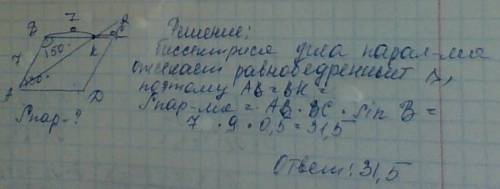 7
B
K
C
150°
7
A
D
Sпар-?
Решение:
Биссектриса угла парал-ма
отсекает равнобедренный Δ,
поэтому AB = BK =
Sпар-ма = AB · BC · sin B =
7 · 9 · 0,5 = 31,5
Ответ: 31,5